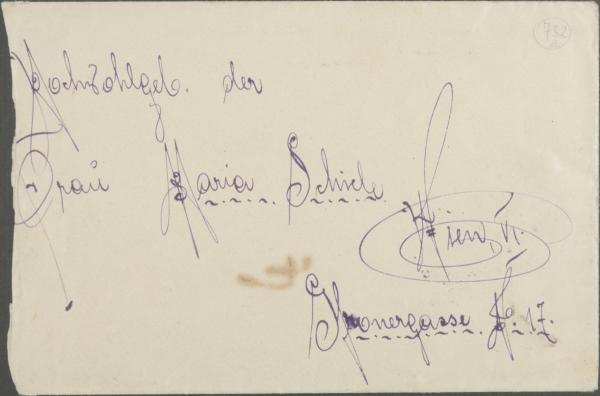 732
Hochwohlgeb. der
Frau Maria Schiele
Wien, VI.
gasse N. 17.